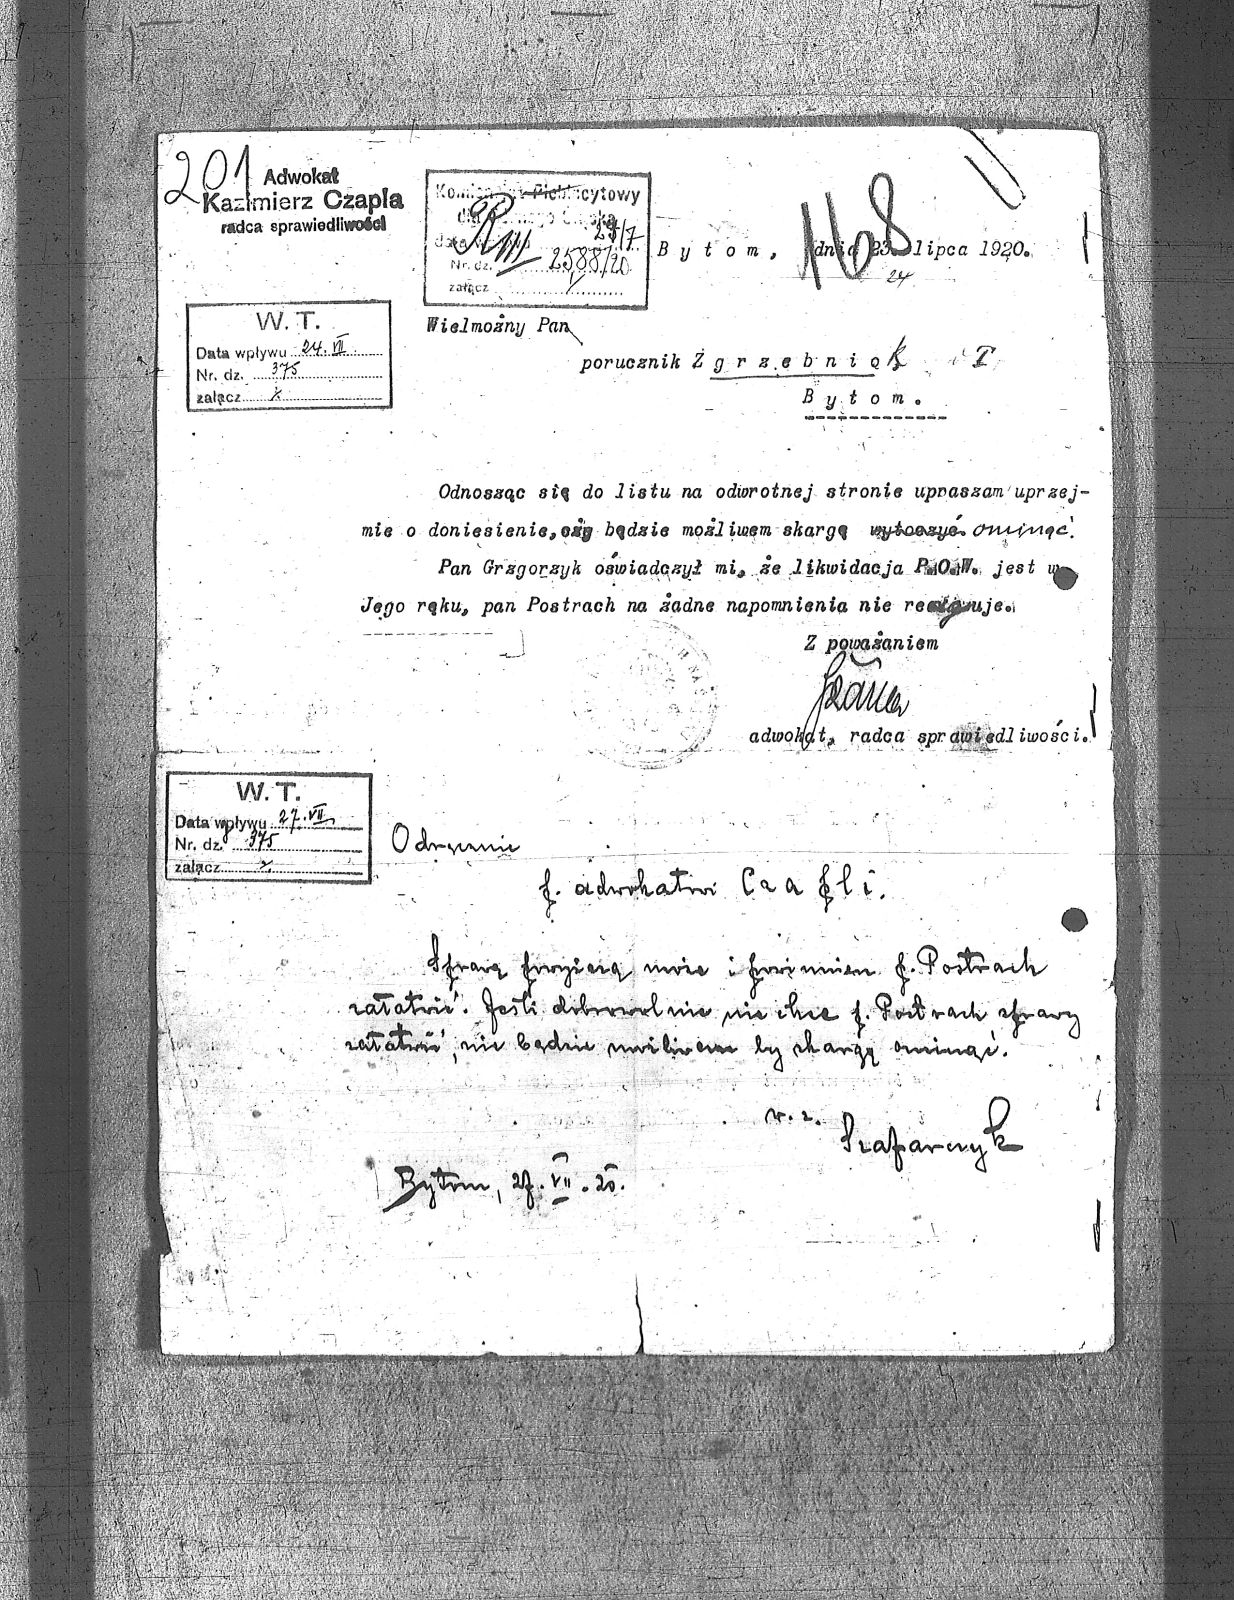 201
Adwokat
Kazimierz Czapla
radca sprawiedliwości
Komisarjat Plebiscytowy
R III 24/7
Nr. dz. 2588/20
załącz
168
Bytom, dnia 23. lipca 1920.
24
W. T.
Data wpływu 24. VII
Nr. dz. 375
załącz
Wielmożny Pan
porucznik Zgrzebniok
Bytom.
Odnosząc się do listu na odwrotnej stronie upraszam uprzej-
mie o doniesienie, czy będzie możliwem skargę wytoczyć ominąć.
Pan Grzgorzyk oświadczył mi, że likwidacja P.O.W. jest w
Jego ręku, pan Postrach na żadne napomnienia nie reaguje.
Z poważaniem
adwokat, radca sprawiedliwości.
W. T.
Data wpływu 27. VII
Nr. dz. 375
załącz
Odręcznie
p. adwokatowi Czapli.
Sprawę powyższą może i powinien p. Postrach
załatwić. Jeśli dobrowolnie nie chce p. Postrach sprawy
załatwić, nie będzie możliwem by skargę ominąć.
w. z.
Szafarczyk
Bytom, 27. VII. 20.